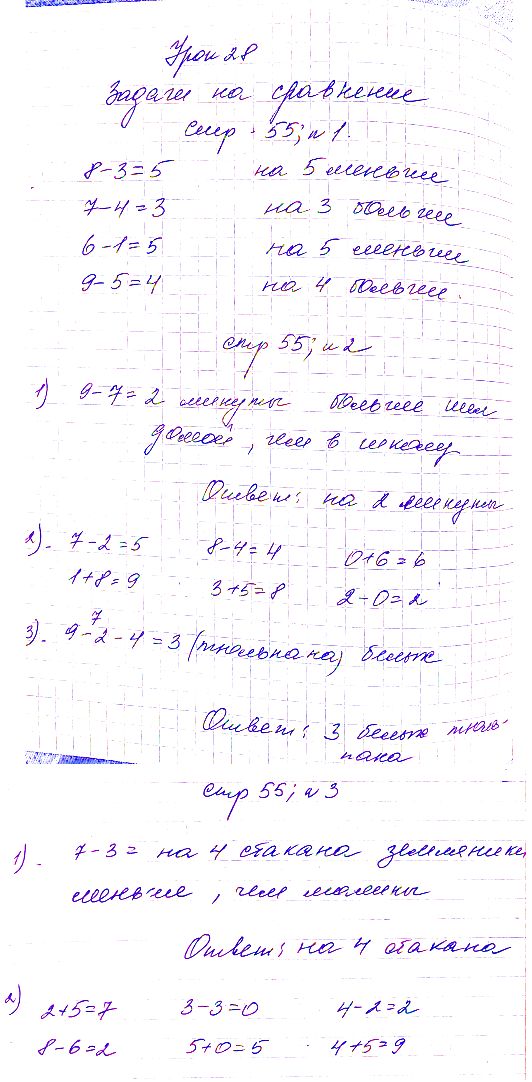 Урок 28
Задачи на сравнение
стр. 55; n 1.
8-3=5 на 5 меньше
7-4=3 на 3 больше
6-1=5 на 5 меньше
9-5=4 на 4 больше.
стр 55; n 2
1) 9-7=2 минуты больше шел
домой, чем в школу
Ответ: на 2 минуты
2). 7-2=5 8-4=4 0+6=6
1+8=9 3+5=8 2-0=2
7
3). 9-2-4=3 (тюльпана) белых
Ответ: 3 белых тюль-
пана
стр 55; n 3
1). 7-3= на 4 стакана земляники
меньше, чем малины
Ответ: на 4 стакана
2) 2+5=7 3-3=0 4-2=2
8-6=2 5+0=5 4+5=9